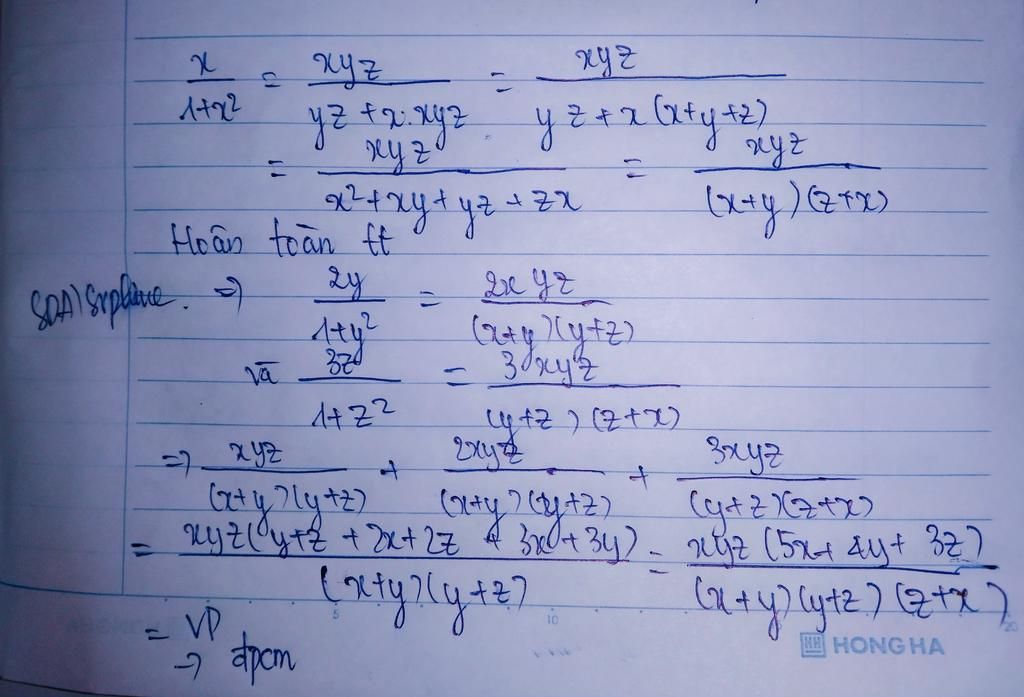 x/(1+x²) = xyz/(yz+x.xyz) = xyz/(yz+x(x+y+z))
= xyz/(x²+xy+yz+zx) = xyz/((x+y)(z+x))
Hoàn toàn tt
=> 2y/(1+y²) = 2xyz/((x+y)(y+z))
và 3z/(1+z²) = 3xyz/((y+z)(z+x))
=> xyz/((x+y)(y+z)) + 2xyz/((x+y)(y+z)) + 3xyz/((y+z)(z+x))
= xyz(y+z+2x+2z+3x+3y)/((x+y)(y+z)) = xyz(5x+4y+3z)/((x+y)(y+z)(z+x))
= VP
→ đpcm
HONG HA